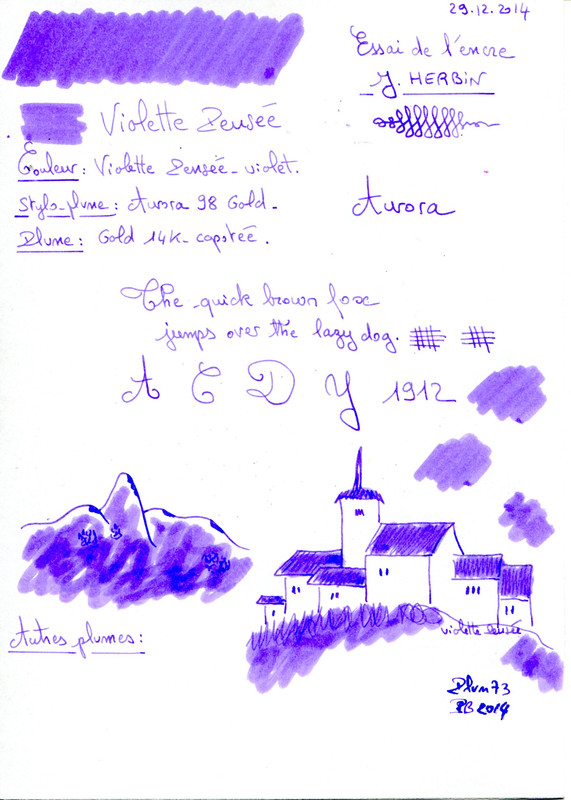 29.12.2014
Essai de l'encre
J. HERBIN
Violette Pensée
Couleur : Violette Pensée - violet.
Stylo-plume : Aurora 98 Gold -
Plume : Gold 14K - capotée .
Aurora
The quick brown fox
jumps over the lazy dog.
A C D Y 1912
Autres plumes :
violette pensée
Plum73
PB 2014